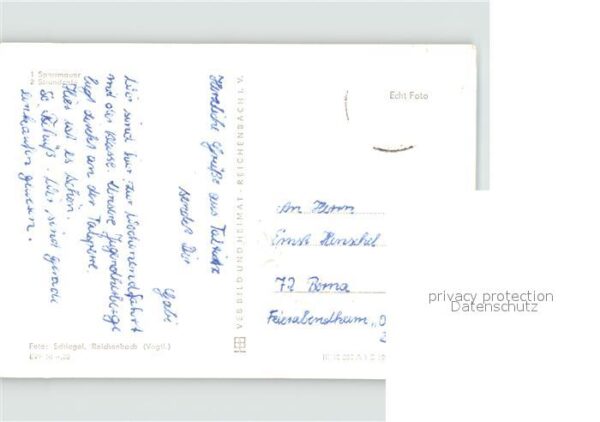 1 Sperrmauer
2 Strandcafé
Herzliche Grüße aus
sendet Dir
Gabi
Wir sind hier zur Wochenendfahrt
mit der Klasse. Unsere Jugendherberge
liegt direkt an der Talsperre.
Hier ist es schön.
Wir sind gerade
einkaufen gewesen.
VEB BILD UND HEIMAT · REICHENBACH I. V.
Foto: Schlegel, Reichenbach (Vogtl.)
Echt Foto
An Herrn
Ernst Henschel
72 Borna
Feierabendheim „
privacy protection
Datenschutz